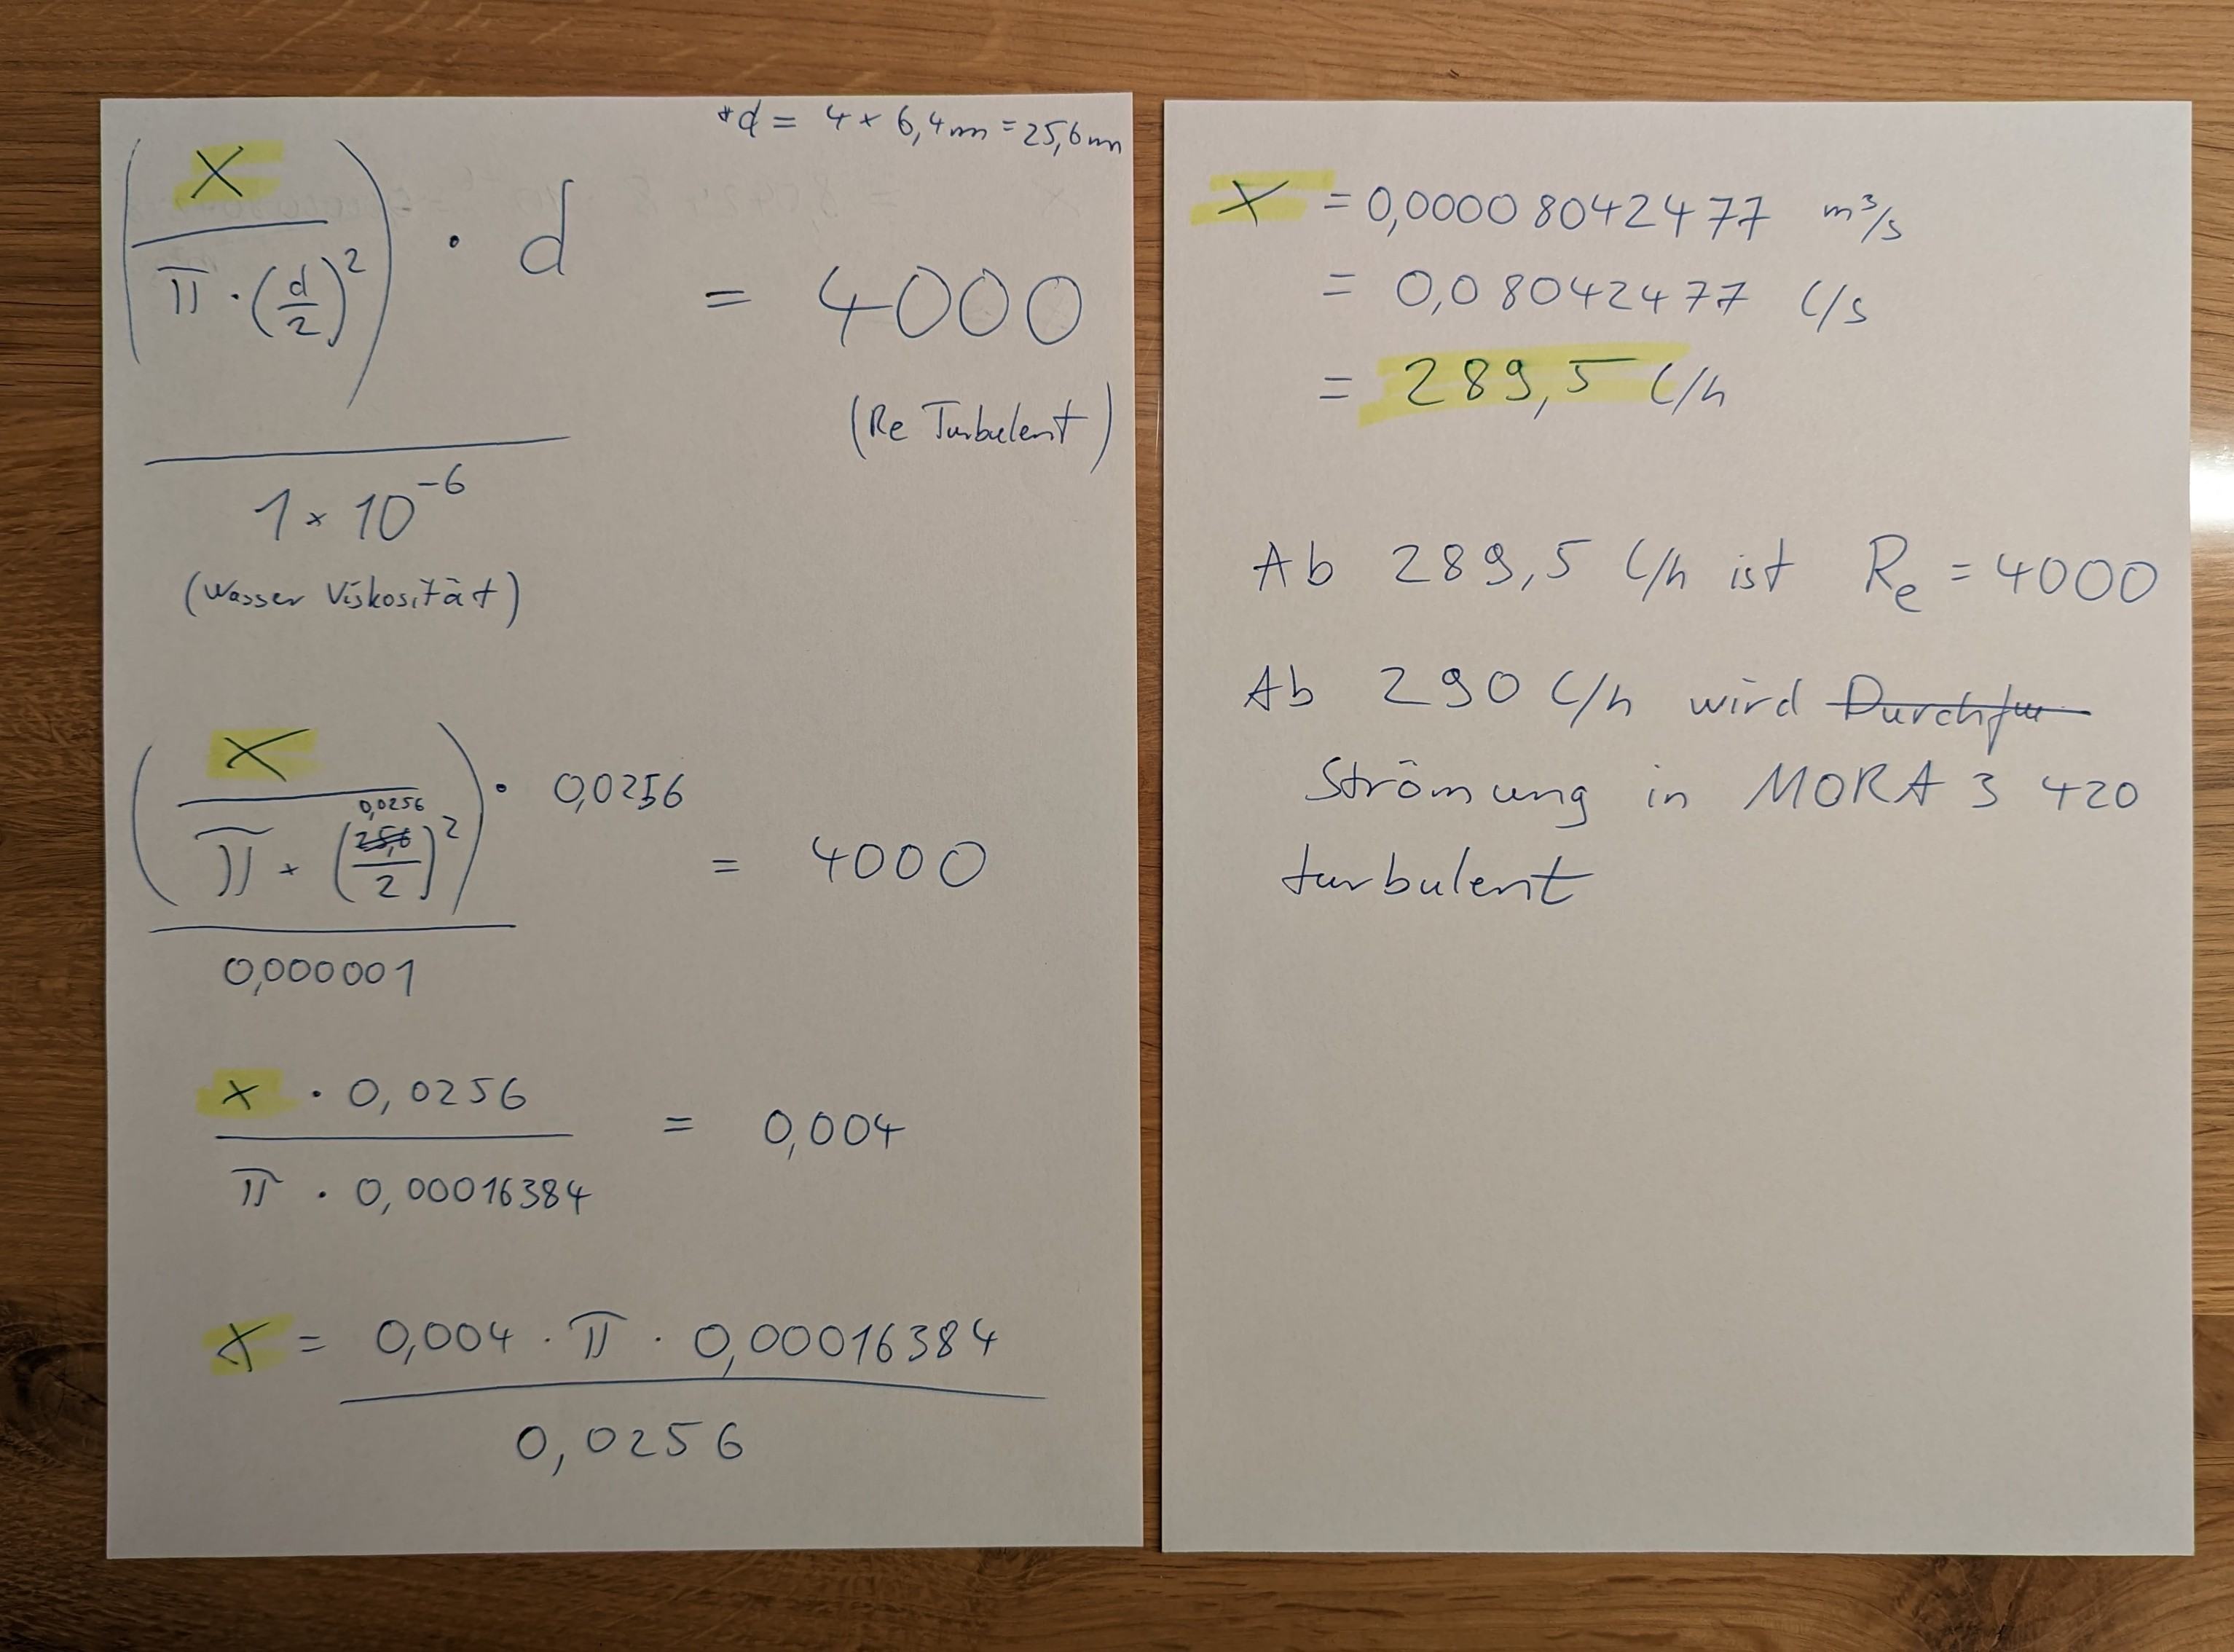 *d = 4 × 6,4mm = 25,6mm
(X / (π · (d/2)²)) · d / (1 × 10⁻⁶) = 4000
(Re Turbulent)
(Wasser Viskosität)
(X / (π × (0,0256/2)²)) · 0,0256 / 0,000001 = 4000
x · 0,0256 / (π · 0,00016384) = 0,004
X = 0,004 · π · 0,00016384 / 0,0256
X = 0,0000 8042477 m³/s
= 0,08042477 l/s
= 289,5 l/h
Ab 289,5 l/h ist Re = 4000
Ab 290 l/h wird
Strömung in MORA 3 420
turbulent